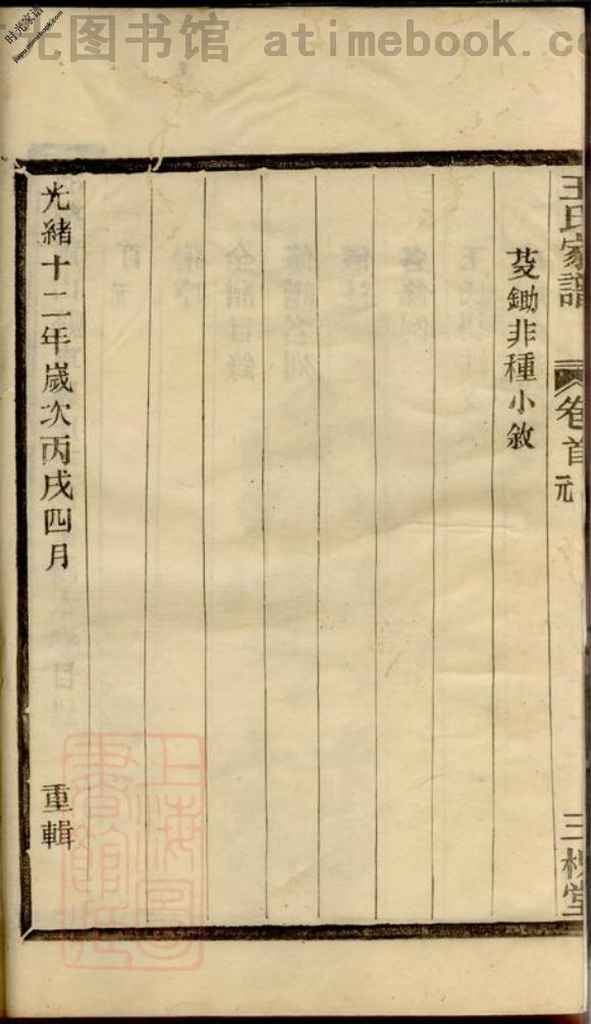 光图书馆 atimebook.co
时光家谱
www.atimebook.com
王氏家譜
卷首
元
三槐堂
芟鋤非種小敘
光緒十二年歲次丙戌四月 重輯
上海圖書館藏